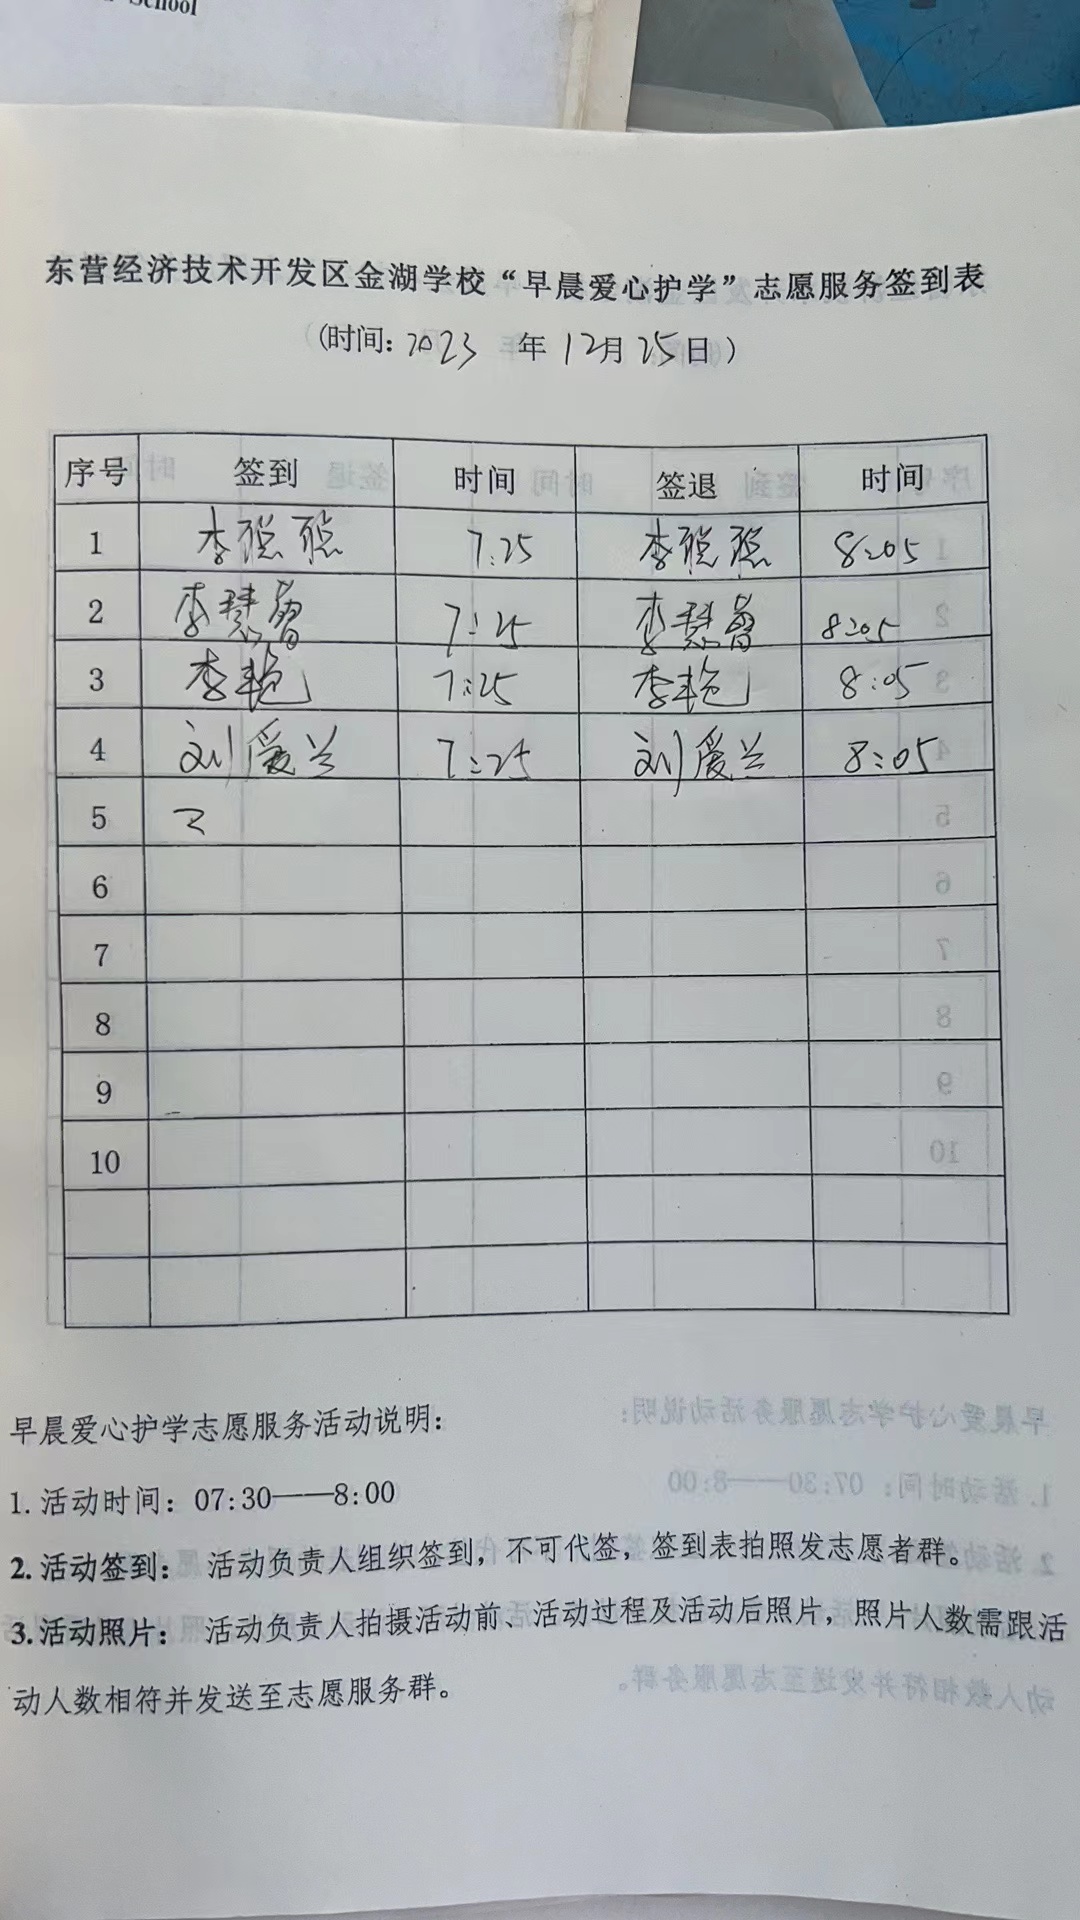 School
东营经济技术开发区金湖学校“早晨爱心护学”志愿服务签到表
(时间: 2023 年 12月 25日)
序号 签到 时间 签退 时间
1 李聪聪 7:25 李聪聪 8:05
2 李慧 7:25 李慧 8:05
3 李艳 7:25 李艳 8:05
4 刘爱兰 7:25 刘爱兰 8:05
5
6
7
8
9
10
早晨爱心护学志愿服务活动说明:
1. 活动时间: 07:30——8:00
2. 活动签到: 活动负责人组织签到, 不可代签, 签到表拍照发志愿者群。
3. 活动照片: 活动负责人拍摄活动前、活动过程及活动后照片, 照片人数需跟活
动人数相符并发送至志愿服务群。